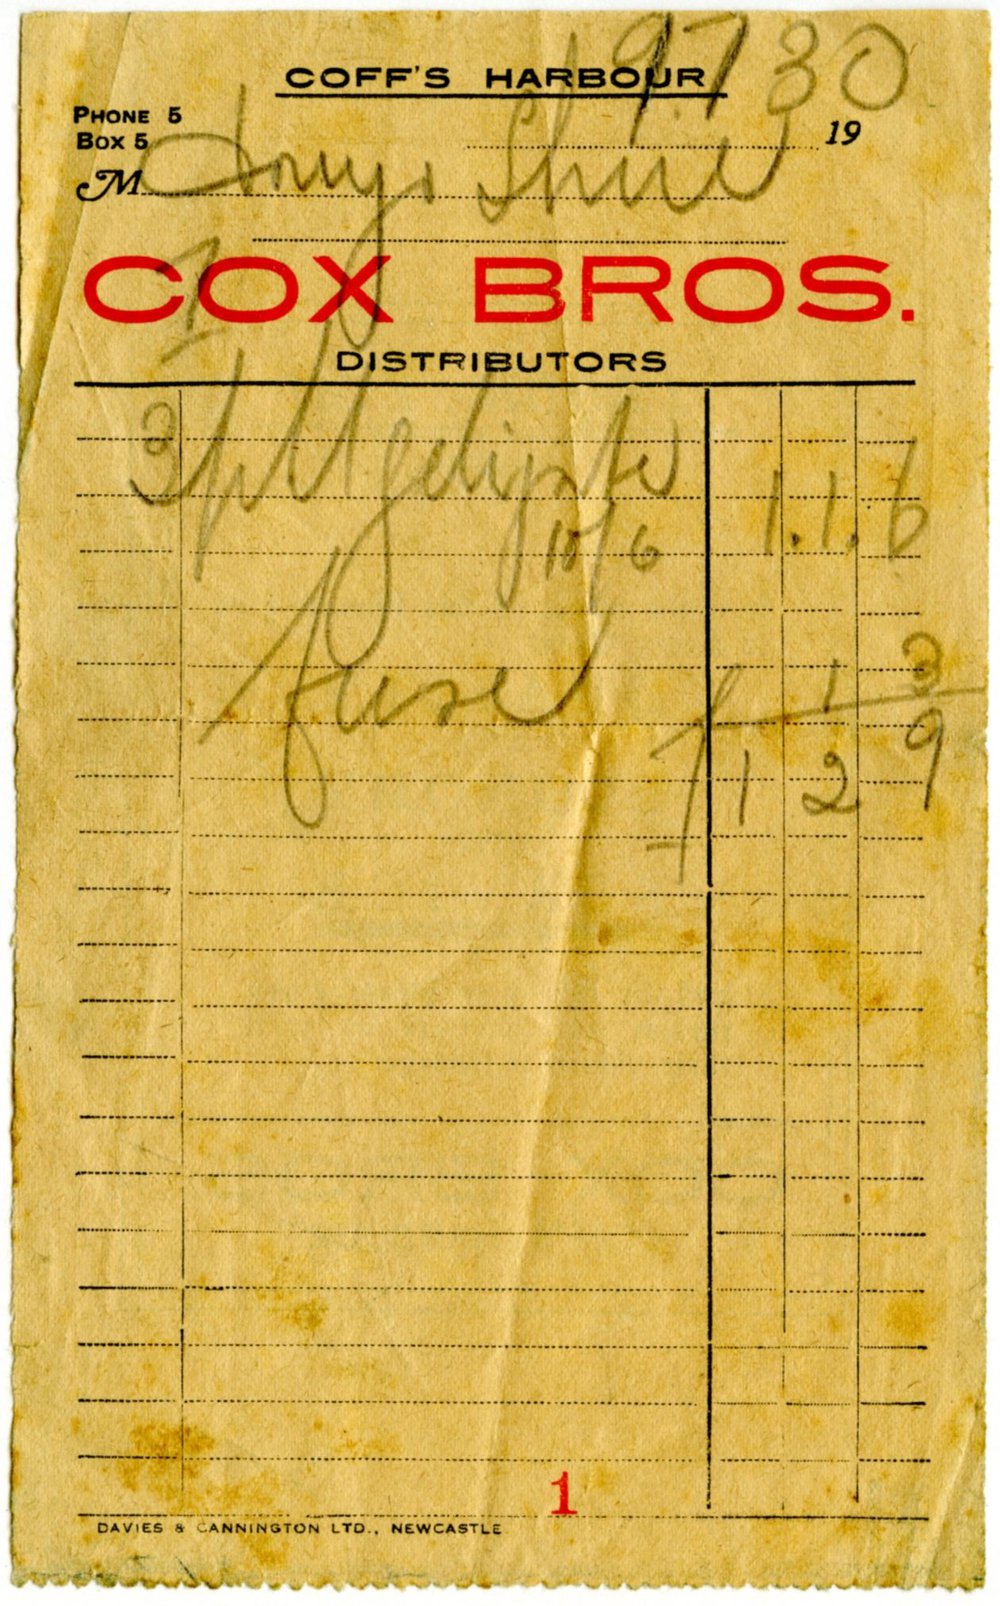 9.7.30
COFF'S HARBOUR
PHONE 5
BOX 5
19
M Dorrigo Shire
COX BROS.
DISTRIBUTORS
3 pkt gelignite
10/6 1.1.6
fuse 1 3
£ 1 2 9
1
DAVIES & CANNINGTON LTD., NEWCASTLE